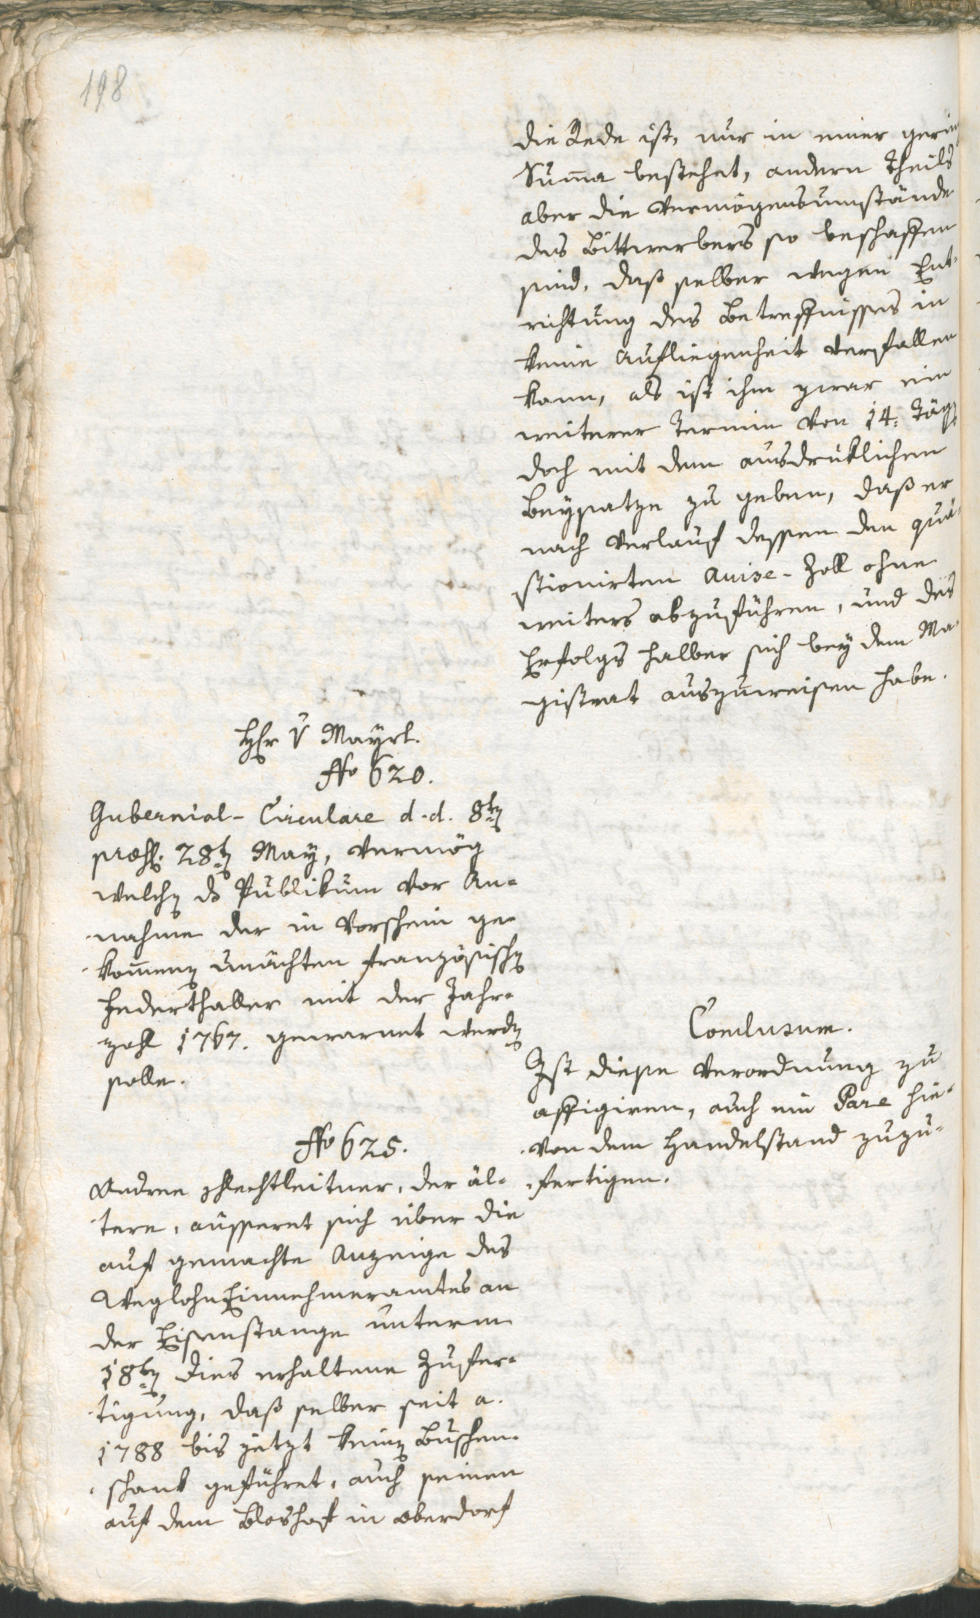 198
die Rede ist, nur in einer gerin
Suma bestehet, andern Theils
aber die Vermögensumstände
des Bittwerbers so beschaffen
sind, daß selber wegen Ent-
richtung des Betreffnisses in
keine Aufliegenheit verfallen
kann, als ist ihm zwar ein
weiterer Termin von 14. Täg
doch mit dem ausdruklichen
Beysatze zu geben, daß er
nach Verlauf dessen den quä-
stionirten Avise-Zoll ohne
weiters abzuführen, und des
Erfolgs halber sich bey dem Ma-
gistrat auszuweisen habe.
Hr v Mayrl.
No 620.
Gubernial-Circulare d.d. 8ten
præs. 28ten May, vermög
welchen ds Publikum vor An-
nahme der in Vorschein ge-
komenen unächten französischen
Federthaller mit der Jahr-
zahl 1767. gewarnet werden
solle.
Conclusum.
Ist diese Verordnung zu
affigiren, auch ein Pare hie-
von dem Handelstand zuzu-
fertigen.
No 625.
Andree Schlechtleitner, der äl-
tere, äusseret sich über die
auf gemachte Anzeige des
Weglohn Einnehmeramtes an
der Eisenstange unterm
18ten dies erhaltene Zufer-
tigung, daß selber seit a.
1788 bis jetzt keinen Buschen-
schank geführet, auch seinen
auf dem Bloshof in Oberdorf